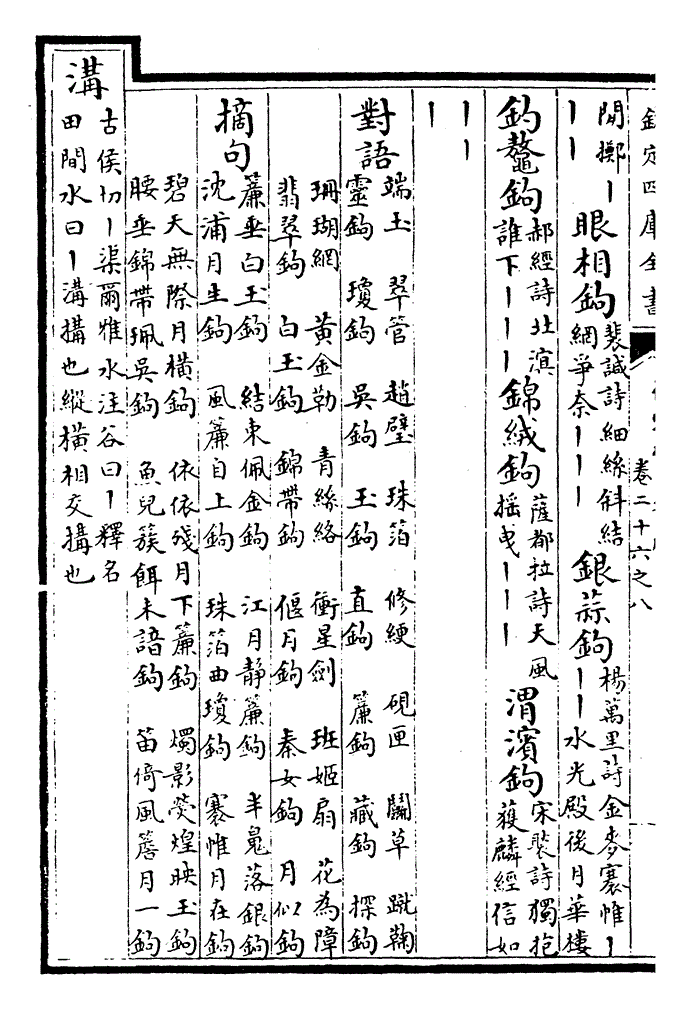 欽定四庫全書
卷二十六之八
閒擲丨
丨丨
眼相鉤
裴諴詩細絲斜結
網爭奈丨丨丨
銀蒜鉤
楊萬里詩金麥褰帷丨
丨丨水光殿後月華樓
釣鼇鉤
郝經詩北滇
誰下丨丨丨
錦絨鉤
薩都拉詩天風
揺曳丨丨丨
渭濱鉤
宋褧詩獨抱
獲麟經信如
丨丨
丨
對語
端玉 翠管 趙璧 珠箔 修綆 硯匣 鬭草 蹴鞠
靈鉤 瓊鉤 吳鉤 玉鉤 直鉤 簾鉤 藏鉤 探鉤
珊瑚網 黃金勒 青絲絡 衝星劍 班姬扇 花為障
翡翠鉤 白玉鉤 錦帶鉤 偃月鉤 秦女鉤 月似鉤
摘句
簾垂白玉鉤 結束佩金鉤 江月靜簾鉤 半鳬落銀鉤
沈浦月生鉤 風簾自上鉤 珠箔曲瓊鉤 褰帷月在鉤
碧天無際月橫鉤 依依殘月下簾鉤 燭影熒煌映玉鉤
腰垂錦帶珮吳鉤 魚兒簇餌未諳鉤 笛倚風簷月一鉤
溝
古侯切丨渠爾雅水注谷曰丨釋名
田間水曰丨溝搆也縱橫相交搆也